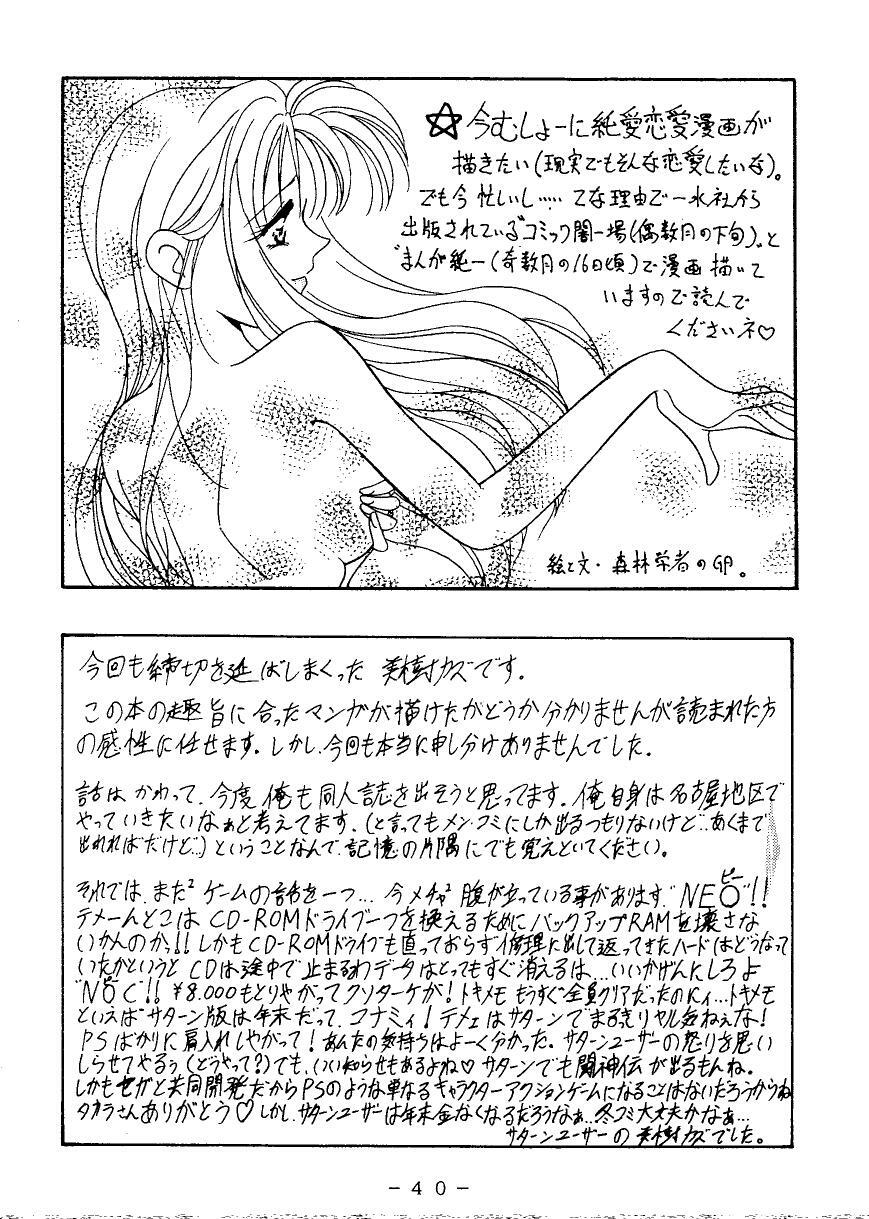 ☆今むしょーに純愛恋愛漫画が
描きたい(現実でもそんな恋愛したいな)。
でも今忙しいし…… てな理由で一水社から
出版されている"コミック闇一場(偶数月の下旬)"と
"まんが純一(奇数月の16日頃)で漫画描いて
いますので読んで
くださいネ♡
絵と文・森林栄者のGP。
今回も締切を延ばしまくった 美樹カズです。
この本の趣旨に合ったマンガが描けたかどうか分かりませんが読まれた方
の感性に任せます。しかし、今回も本当に申し分けありませんでした。
話はかわって、今度俺も同人誌を出そうと思ってます。俺自身は名古屋地区で
やっていきたいなぁと考えてます、(と言ってもメン・コミにしか出るつもりないけど…あくまで
出れればだけど…)ということなんで、記憶の片隅にでも覚えといてください。
それでは、また²ゲームの話を一つ… 今メチャ²腹が立っている事があります"NEO"!!
ピー
テメーんとこは CD-ROMドライブ一つを換えるためにバックアップRAMを壊さな
いかんのかっ!!しかもCD-ROMドライブも直っておらず修理に出して返ってきたハードはどうなって
いたかというと CDは途中で止まるわデータはとってもすぐ消えるは…いいかげんにしろよ
"NOC"!! ¥8.000もとりやがってクソターケが!トキメモ もうすぐ全員クリアだったのにィ…トキメモ
といえばサターン版は年末だって、コナミィ!テメェはサターンでまるきりヤル気ねぇな!
PSばかりに肩入れしやがって!あんたの気持ちはよーく分かった。サターンユーザーの怒りを思い
しらせてやるぅ(どうやって?)でも、いい知らせもあるよね♡サターンでも闘神伝が出るもんね。
しかもセガと共同開発だからPSのような単なるキャラクターアクションゲームになることはないだろうからね
タカラさんありがとう♡しかし、サターンユーザーは年末金なくなるだろうなぁ…冬コミ大丈夫かなぁ…
サターンユーザーの 美樹カズでした。
- 40 -